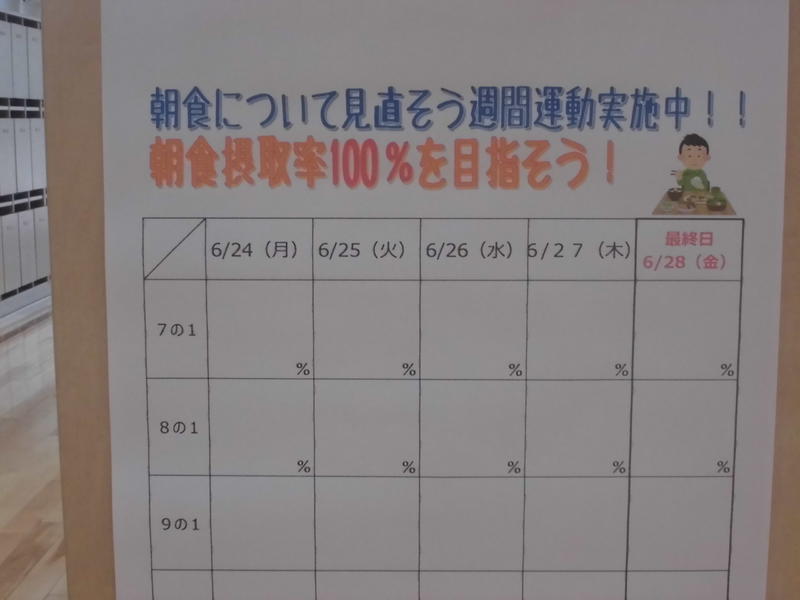 朝食について見直そう週間運動実施中！！
朝食摂取率100％を目指そう！
6/24（月） 6/25（火） 6/26（水） 6/２７（木） 最終日
6/28（金）
７の1
% % % % %
８の1
% % % % %
９の1